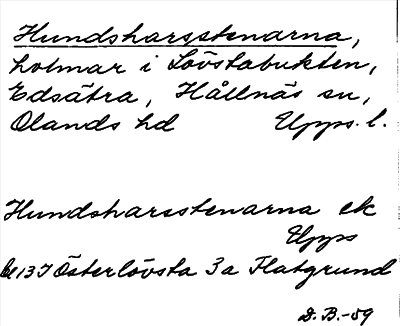 Hundsharsstenarna,
holmar i Lövstabukten,
Edsätra, Hållnäs sn,
Olands hd Upps. l.
Hundsharsstenarna ek
Upps
bl 13 I Österlövsta 3a Flatgrund
D. B.-59